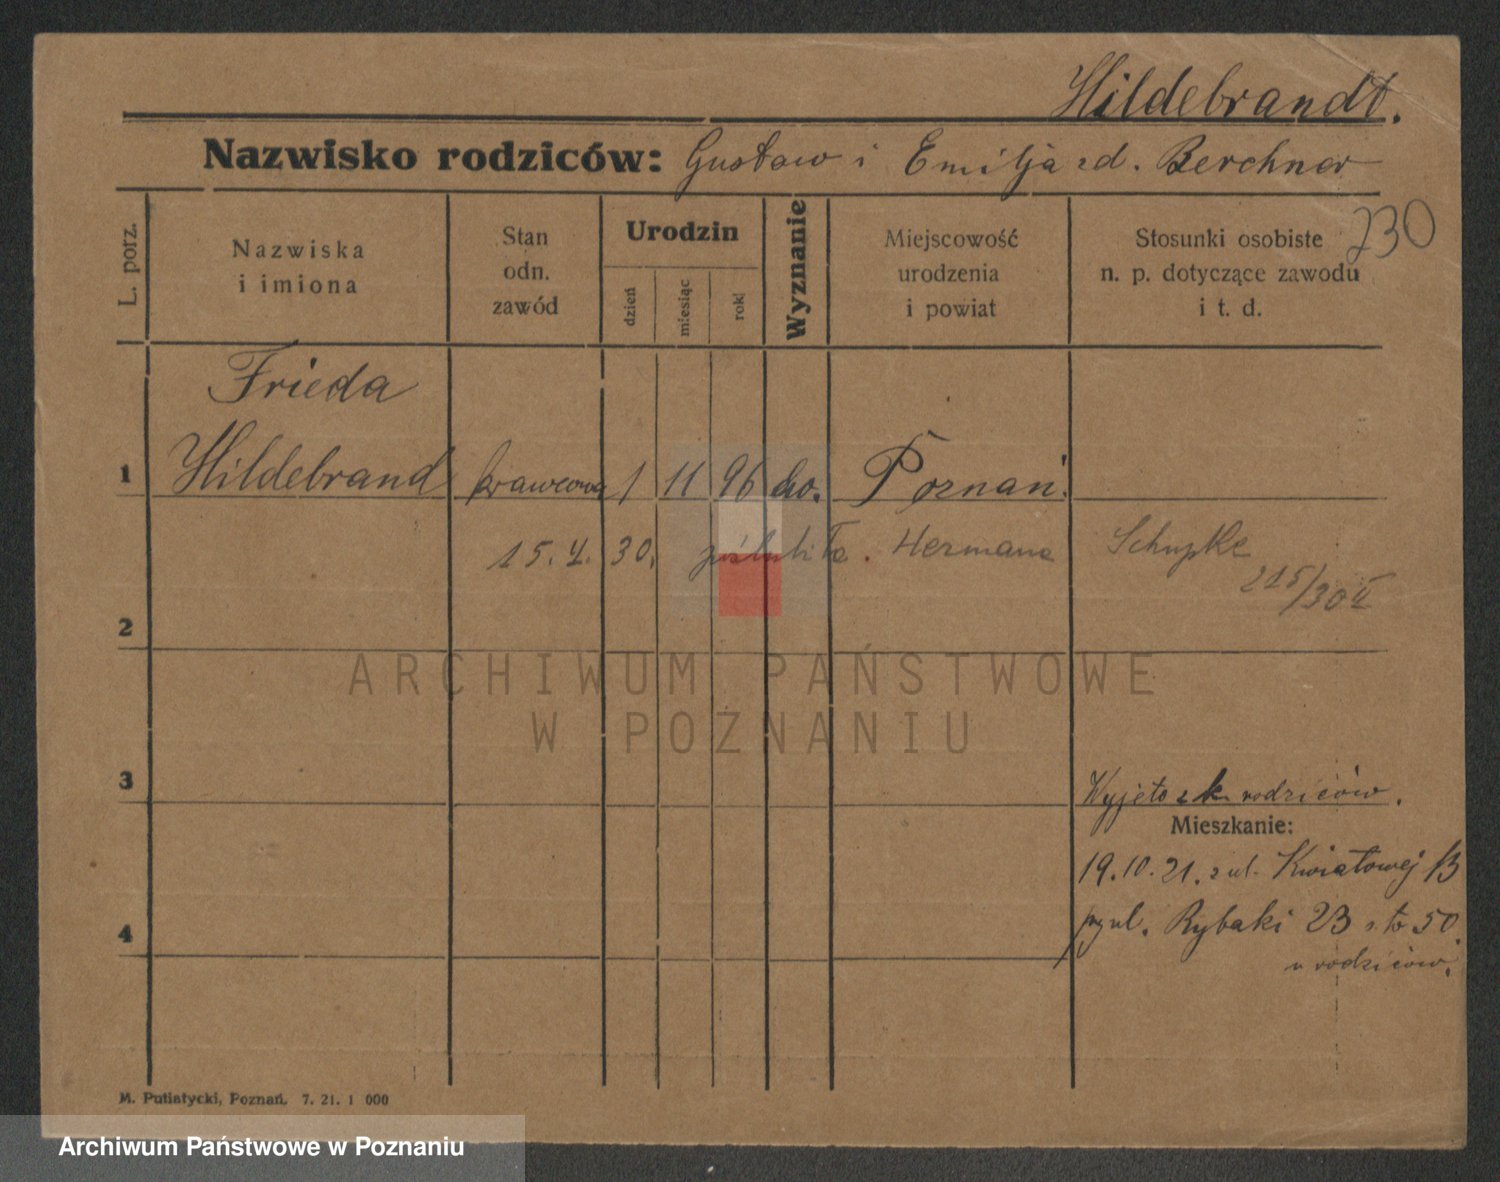 Hildebrandt.
Nazwisko rodziców: Gustaw i Emilja zd. Berchner
730
L. porz.
Nazwiska
i imiona
Stan
odn.
zawód
Urodzin
dzień
miesiąc
rok
Wyznanie
Miejscowość
urodzenia
i powiat
Stosunki osobiste
n. p. dotyczące zawodu
i t. d.
Frieda
1 Hildebrand krawcowa 1 11 96 Poznań.
15. 4. 30. poślubiła. Hermana Schupke
215/30 II
2
ARCHIWUM PAŃSTWOWE
W POZNANIU
3 Wyjęto z k. rodziców.
Mieszkanie:
19.10.21. z ul. Kwiatowej 13
4 ul. Rybaki 23 50.
u rodziców.
M. Putiatycki, Poznań. 7. 21. 1 000
Archiwum Państwowe w Poznaniu